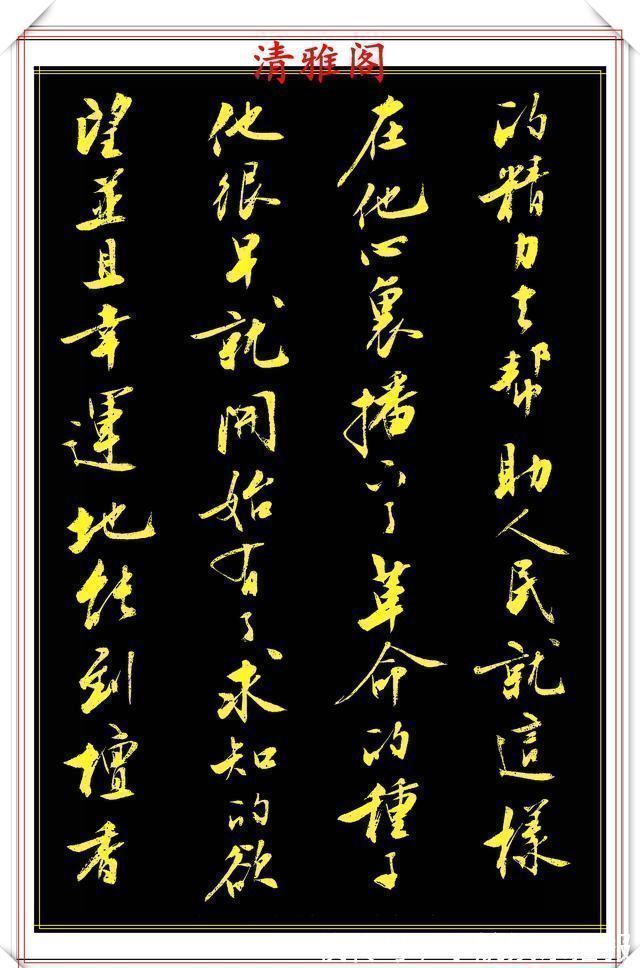 清雅阁
的精力去帮助人民就這樣
在他心裏播下了革命的種子
他很早就開始有了求知的欲
望並且幸運地能到檀香